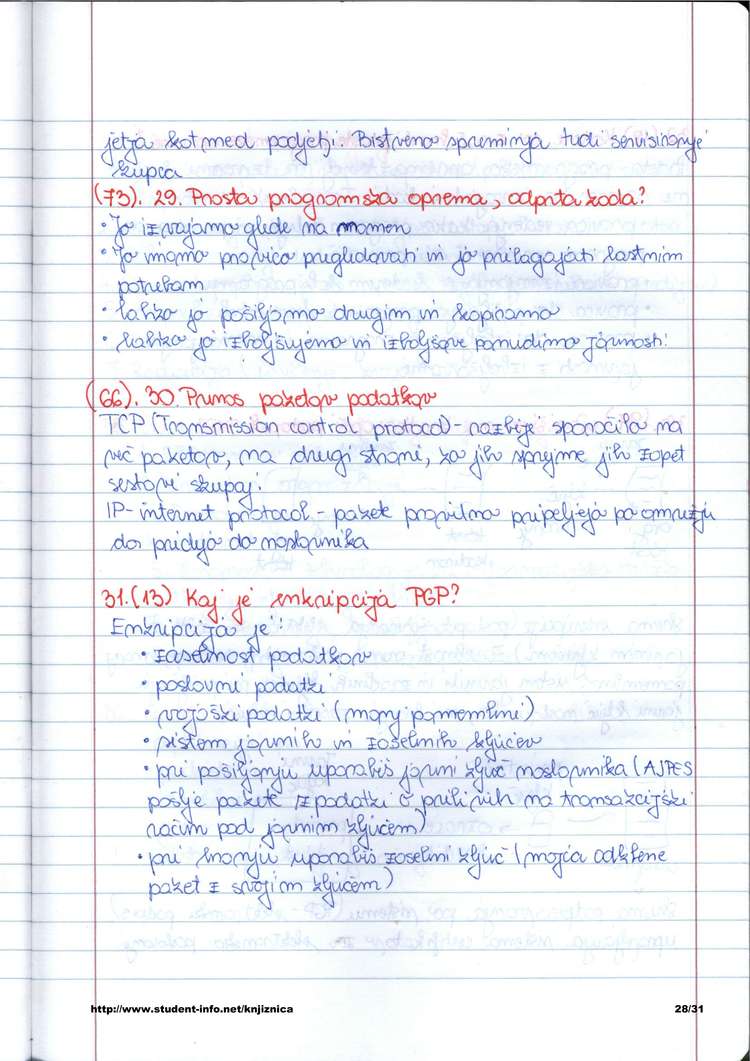 jetja kot med podjetji. Bistveno spreminja tudi servisiranje
kupca
(73). 29. Prosta programska oprema, odprta koda?
• Jo izvajamo glede na namen
• Jo imamo pravico pregledovati in jo prilagajati lastnim
potrebam
• lahko jo pošiljamo drugim in kopiramo
• lahko jo izboljšujemo in izboljšave ponudimo javnosti.
(66). 30. Prenos paketov podatkov
TCP (Transmission control protocol) - razbije sporočilo na
več paketov, na drugi strani, ko jih sprejme jih zopet
sestavi skupaj.
IP - internet protocol - paket pravilno pripeljeja po omrežju
da pridejo do naslovnika
31. (13) Kaj je enkripcija PGP?
Enkripcija je:
• zasebnost podatkov
• poslovni podatki
• vojaški podatki (manj pomembni)
• sistem javnih in zasebnih ključev
• pri pošiljanju uporabiš javni ključ naslovnika (AJPES
pošlje paket z podatki o prilivih na transakcijski
račun pod javnim ključem)
• pri branju uporabiš zasebni ključ (mojca odklene
paket z svojim ključem)
http://www.student-info.net/knjiznica
28/31